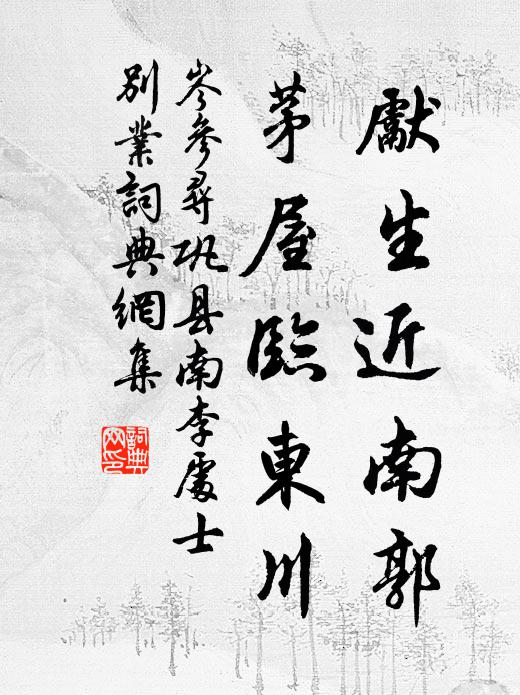 獻生近南郭
茅屋臨東川
岑參尋巩县南李處士
別業詞典網集
詞典
网印